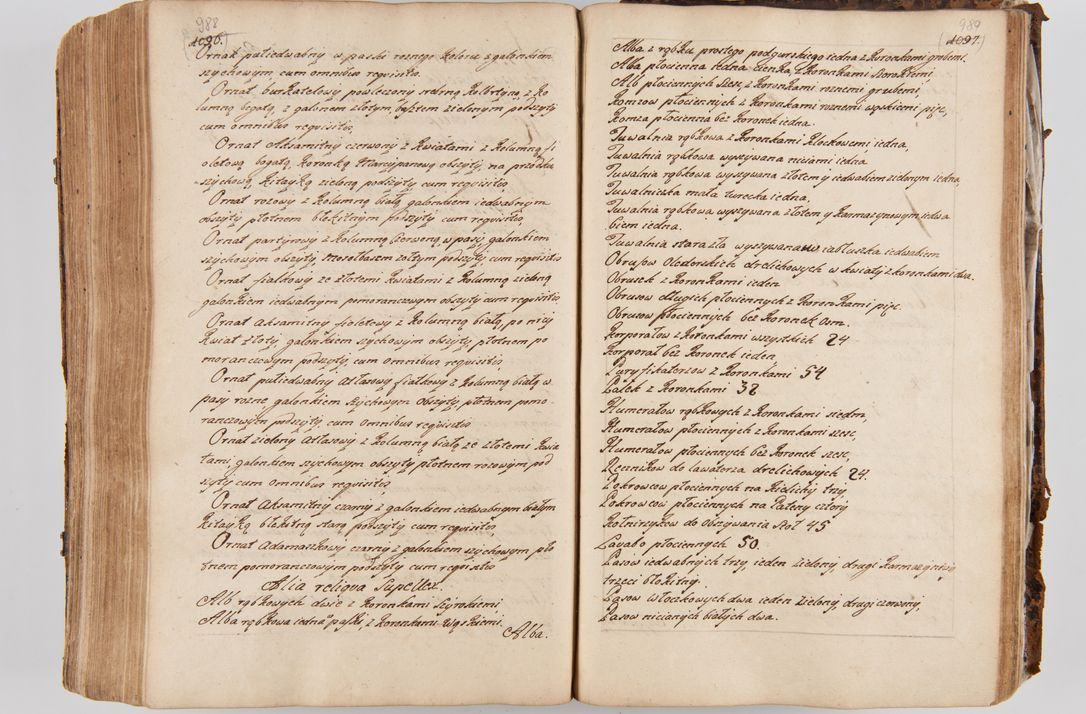 988
1096.
Ornat pułiedwabny w paski roznego koloru z galonkiem
szychowym cum omnibus requisitis.
Ornat burkatelowy powleczony srebrną kolumną z ko
lumną bogatą, z galonem złotym, bestem zielonym podszyty
cum omnibus requisitis,
Ornat Aksamitny czerwony z kwiatami z kolumną fi
oletową bogatą, koronką marcypanową obszyty, na przodku
szychową, kitayką zieloną podszyty cum requisitis,
Ornat rozowy z kolumną białą galonkiem iedwabnym
obszyty płotnem błękitnym podszyty cum requisitis,
Ornat partyrowy z kolumną czerwoną w pasy galonkiem
szychowym obszyty, muselbasem zołtym podszyty cum requisitis
Ornat fiałkowy ze złotemi kwiatami z kolumną zieloną
galonkiem iedwabnym pomoranczowym obszyty cum requisitis,
Ornat Aksamitny fioletowy z kolumną białą, po niey
kwiat złoty, galonkiem szychowym obszyty, płotnem po
moranczowym podszyty, cum omnibus requisitis,
Ornat pułiedwabny Atłasowy fiałkowy z kolumną białą w
pasy rozne galonkiem szychowym obszyty, płotnem pomo-
ranczowym podszyty, cum omnibus requisitis
Ornat zielony Atłasowy z kolumną białą ze złotemi kwia
tami, galonkiem szychowym obszyty płotnem rozowym pod
szyty cum omnibus requisitis,
Ornat Aksamitny czarny z galonkiem iedwabnym białym
kitayką błękitną starą podszyty cum requisitis,
Ornat adamaszkowy czarny z galonkiem szychowym pło
tnem pomoranczowym podszyty cum requisitis
Alia reliqua Supellex.
Alb rąbkowych dwie z koronkami szyrokiemi
Alba rąbkowa iedna paski, z koronkami wąskiemi.
Alba.
989
1097.
Alba z rąbku prostego podgurskiego iedna z koronkami grubemi.
Alba płocienna iedna cienka, z koronkami szerokiemi
Alb płociennych szesc, z koronkami roznemi grubemi,
Komzow płociennych z koronkami roznemi wąskiemi pięc,
Komza płocienna bez koronek iedna.
Tuwalnia rąbkowa z koronkami klockowemi iedna,
Tuwalnia rąbkowa wyszywana niciami iedna
Tuwalnia rąbkowa wyszywana złotem y iedwabiem zielonym iedna,
Tuwalniezka mała turecka iedna,
Tuwalnia rąbkowa wyszywana złotem y karmazynowym iedwa
biem iedna.
Tuwalnia stara zła wyszywana w iabłuszka iedwabiem
Obrusow Olęderskich drelichowych w kwiaty z koronkami dwa.
Obrusek z koronkami ieden
Obrusow długich płociennych z koronkami pięc.
Obrusow płociennych bez koronek osm.
Korporałow z koronkami wszystkich 24
Korporał bez koronek ieden
Puryfikaterzow z koronkami 54
Palek z koronkami 38
Humerałow rąbkowych z koronkami siedm,
Humerałow płociennych z koronkami szesc,
Humerałow płociennych bez koronek szesc,
Ręcznikow do lawaterza drelichowych 24.
Pokrowcow płociennych na kielichy trzy
Pokrowcow płociennych na Pateny cztery
Kołnirzykow do obszywania stoł 45
Lavabo płociennych 50
Pasow iedwabnych trzy, ieden zielony, drugi karmazynowy
trzeci błękitny.
Pasow włoczkowych dwa ieden zielony, drugi czerwony,
Pasow nicianych białych dwa.